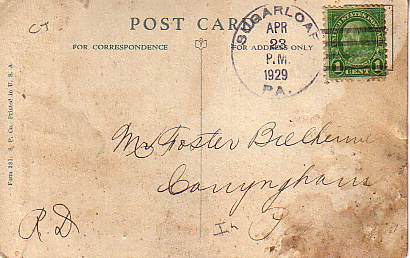 CJ
POST CARD
FOR CORRESPONDENCE
FOR ADDRESS ONLY
SUGARLOAF
APR
23
P.M.
1929
PA.
1 CENT 1
Form 381. S. P. Co. Printed in U. S. A.
Mr Foster
Conyngham
R.D.